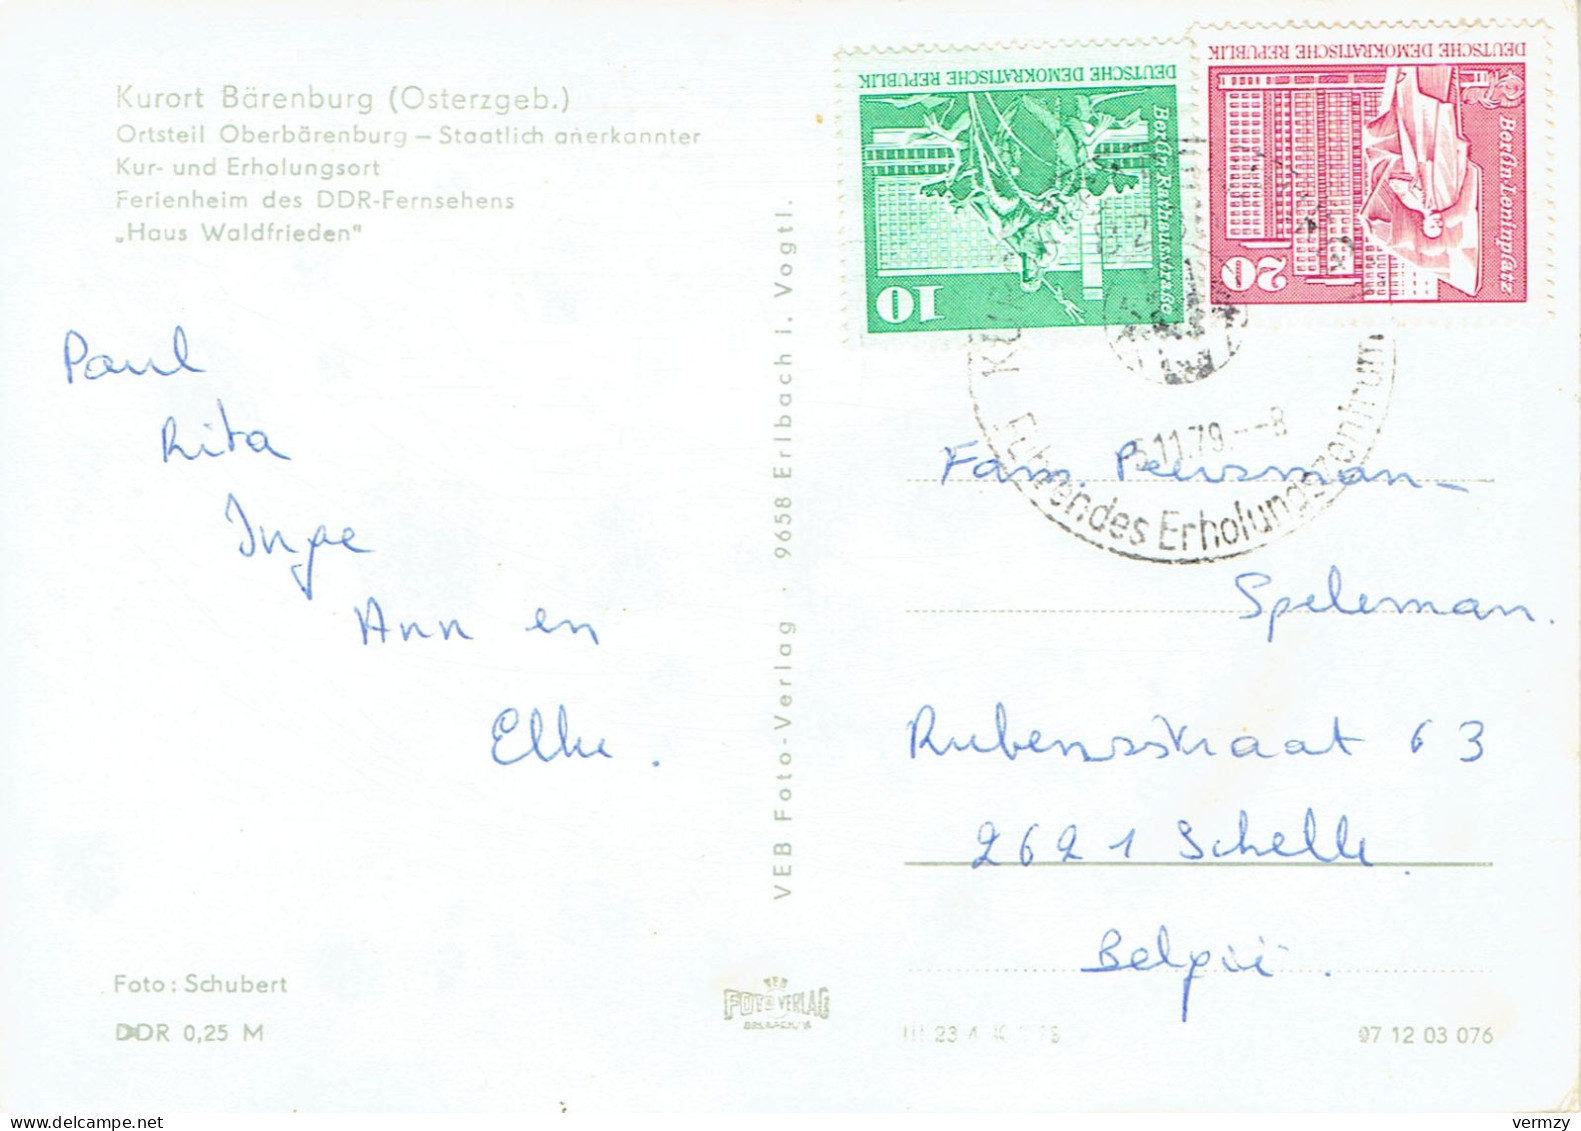 Kurort Bärenburg (Osterzgeb.)
Ortsteil Oberbärenburg – Staatlich anerkannter
Kur- und Erholungsort
Ferienheim des DDR-Fernsehens
„Haus Waldfrieden"
Paul
Rita
Inge
Ann en
Elke.
Foto: Schubert
DDR 0,25 M
VEB Foto-Verlag · 9658 Erlbach i. Vogtl.
VEB
FOTO VERLAG
DEUTSCHE DEMOKRATISCHE REPUBLIK
Berlin-Rathausstraße
10
DEUTSCHE DEMOKRATISCHE REPUBLIK
Berlin-Leninplatz
20
5.11.79.--8
Führendes Erholungszentrum
Fam. Peersman-
Speleman.
Rubensstraat 63
2621 Schelle.
België.
07 12 03 076
vermzy